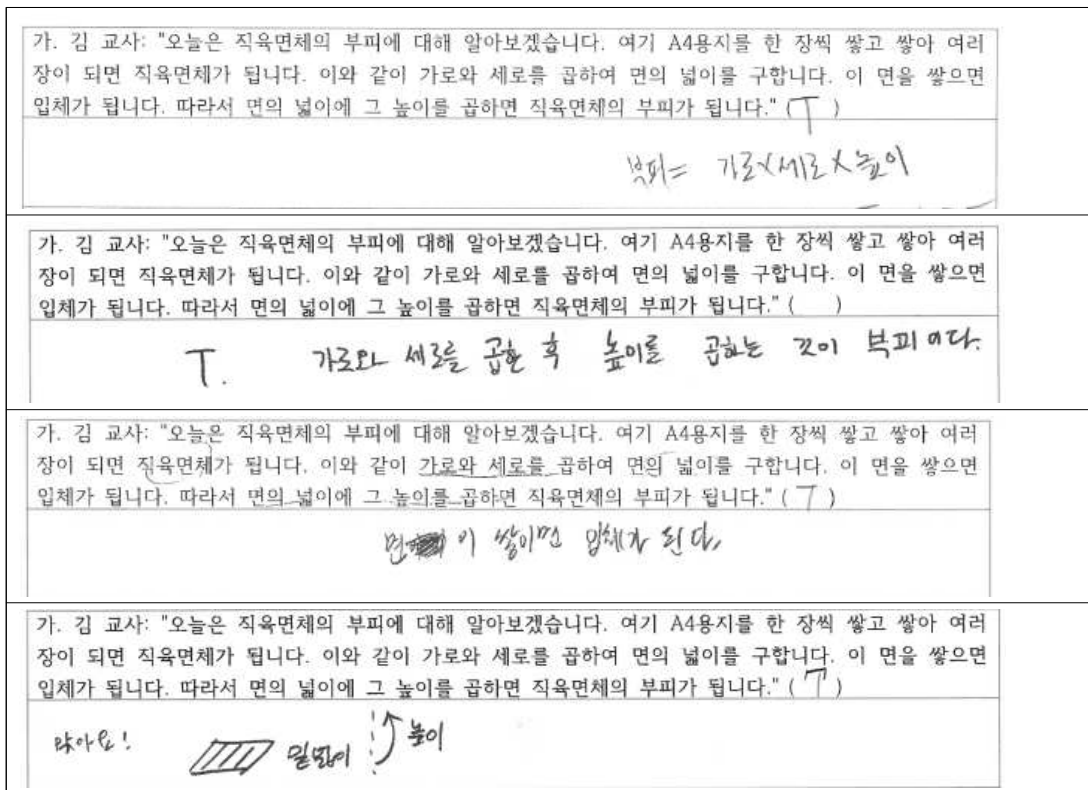 가. 김 교사: "오늘은 직육면체의 부피에 대해 알아보겠습니다. 여기 A4용지를 한 장씩 쌓고 쌓아 여러
장이 되면 직육면체가 됩니다. 이와 같이 가로와 세로를 곱하여 면의 넓이를 구합니다. 이 면을 쌓으면
입체가 됩니다. 따라서 면의 넓이에 그 높이를 곱하면 직육면체의 부피가 됩니다." ( T )
부피= 가로×세로×높이
가. 김 교사: "오늘은 직육면체의 부피에 대해 알아보겠습니다. 여기 A4용지를 한 장씩 쌓고 쌓아 여러
장이 되면 직육면체가 됩니다. 이와 같이 가로와 세로를 곱하여 면의 넓이를 구합니다. 이 면을 쌓으면
입체가 됩니다. 따라서 면의 넓이에 그 높이를 곱하면 직육면체의 부피가 됩니다." ( )
T. 가로와 세로를 곱한 후 높이를 곱하는 것이 부피이다.
가. 김 교사: "오늘은 직육면체의 부피에 대해 알아보겠습니다. 여기 A4용지를 한 장씩 쌓고 쌓아 여러
장이 되면 직육면체가 됩니다. 이와 같이 가로와 세로를 곱하여 면의 넓이를 구합니다. 이 면을 쌓으면
입체가 됩니다. 따라서 면의 넓이에 그 높이를 곱하면 직육면체의 부피가 됩니다." ( T )
면이 쌓이면 입체가 된다.
가. 김 교사: "오늘은 직육면체의 부피에 대해 알아보겠습니다. 여기 A4용지를 한 장씩 쌓고 쌓아 여러
장이 되면 직육면체가 됩니다. 이와 같이 가로와 세로를 곱하여 면의 넓이를 구합니다. 이 면을 쌓으면
입체가 됩니다. 따라서 면의 넓이에 그 높이를 곱하면 직육면체의 부피가 됩니다." ( T )
맞아요! 밑넓이 높이